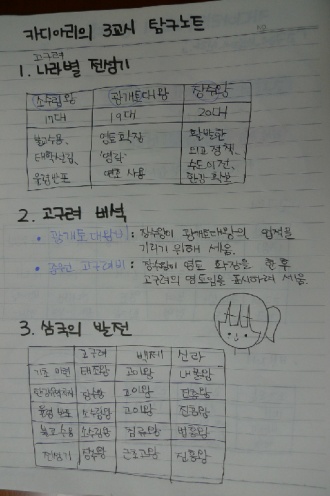 카디아리의 3교시 탐구노트
고구려
1. 나라별 전성기
소수림왕 광개토대왕 장수왕
17대 19대 20대
불교수용, 영토확장 활발한
태학설립, '영락' 외교정책,
율령반포 연호 사용 수도이전,
한강 확보
2. 고구려 비석
• 광개토대왕비 : 장수왕이 광개토대왕의 업적을
기리기 위해 세움.
• 중원고구려비 : 장수왕이 영토 확장을 한 후
고구려의 영토임을 표시하려 세움.
3. 삼국의 발전
고구려 백제 신라
기초 마련 태조왕 고이왕 내물왕
장수왕 고이왕 진흥왕
율령 반포 소수림왕 고이왕 법흥왕
불교 수용 소수림왕 침류왕 법흥왕
전성기 장수왕 근초고왕 진흥왕